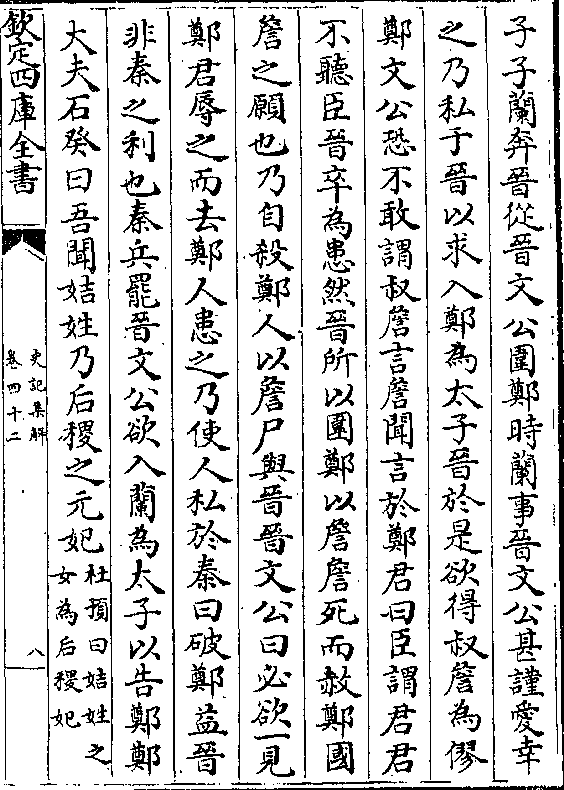 子子蘭奔晉從晉文公圍鄭時蘭事晉文公甚謹愛幸
之乃私于晉以求入鄭為太子晉於是欲得叔詹為僇
鄭文公恐不敢謂叔詹言詹聞言於鄭君曰臣謂君君
不聽臣晉卒為患然晉所以圍鄭以詹詹死而赦鄭國
詹之願也乃自殺鄭人以詹尸與晉晉文公曰必欲一見
鄭君辱之而去鄭人患之乃使人私於秦曰破鄭益晉
非秦之利也秦兵罷晉文公欲入蘭為太子以告鄭鄭
大夫石癸曰吾聞姞姓乃后稷之元妃杜預曰姞姓之女為后稷妃
欽定四庫全書
史記集解
卷四十二
八